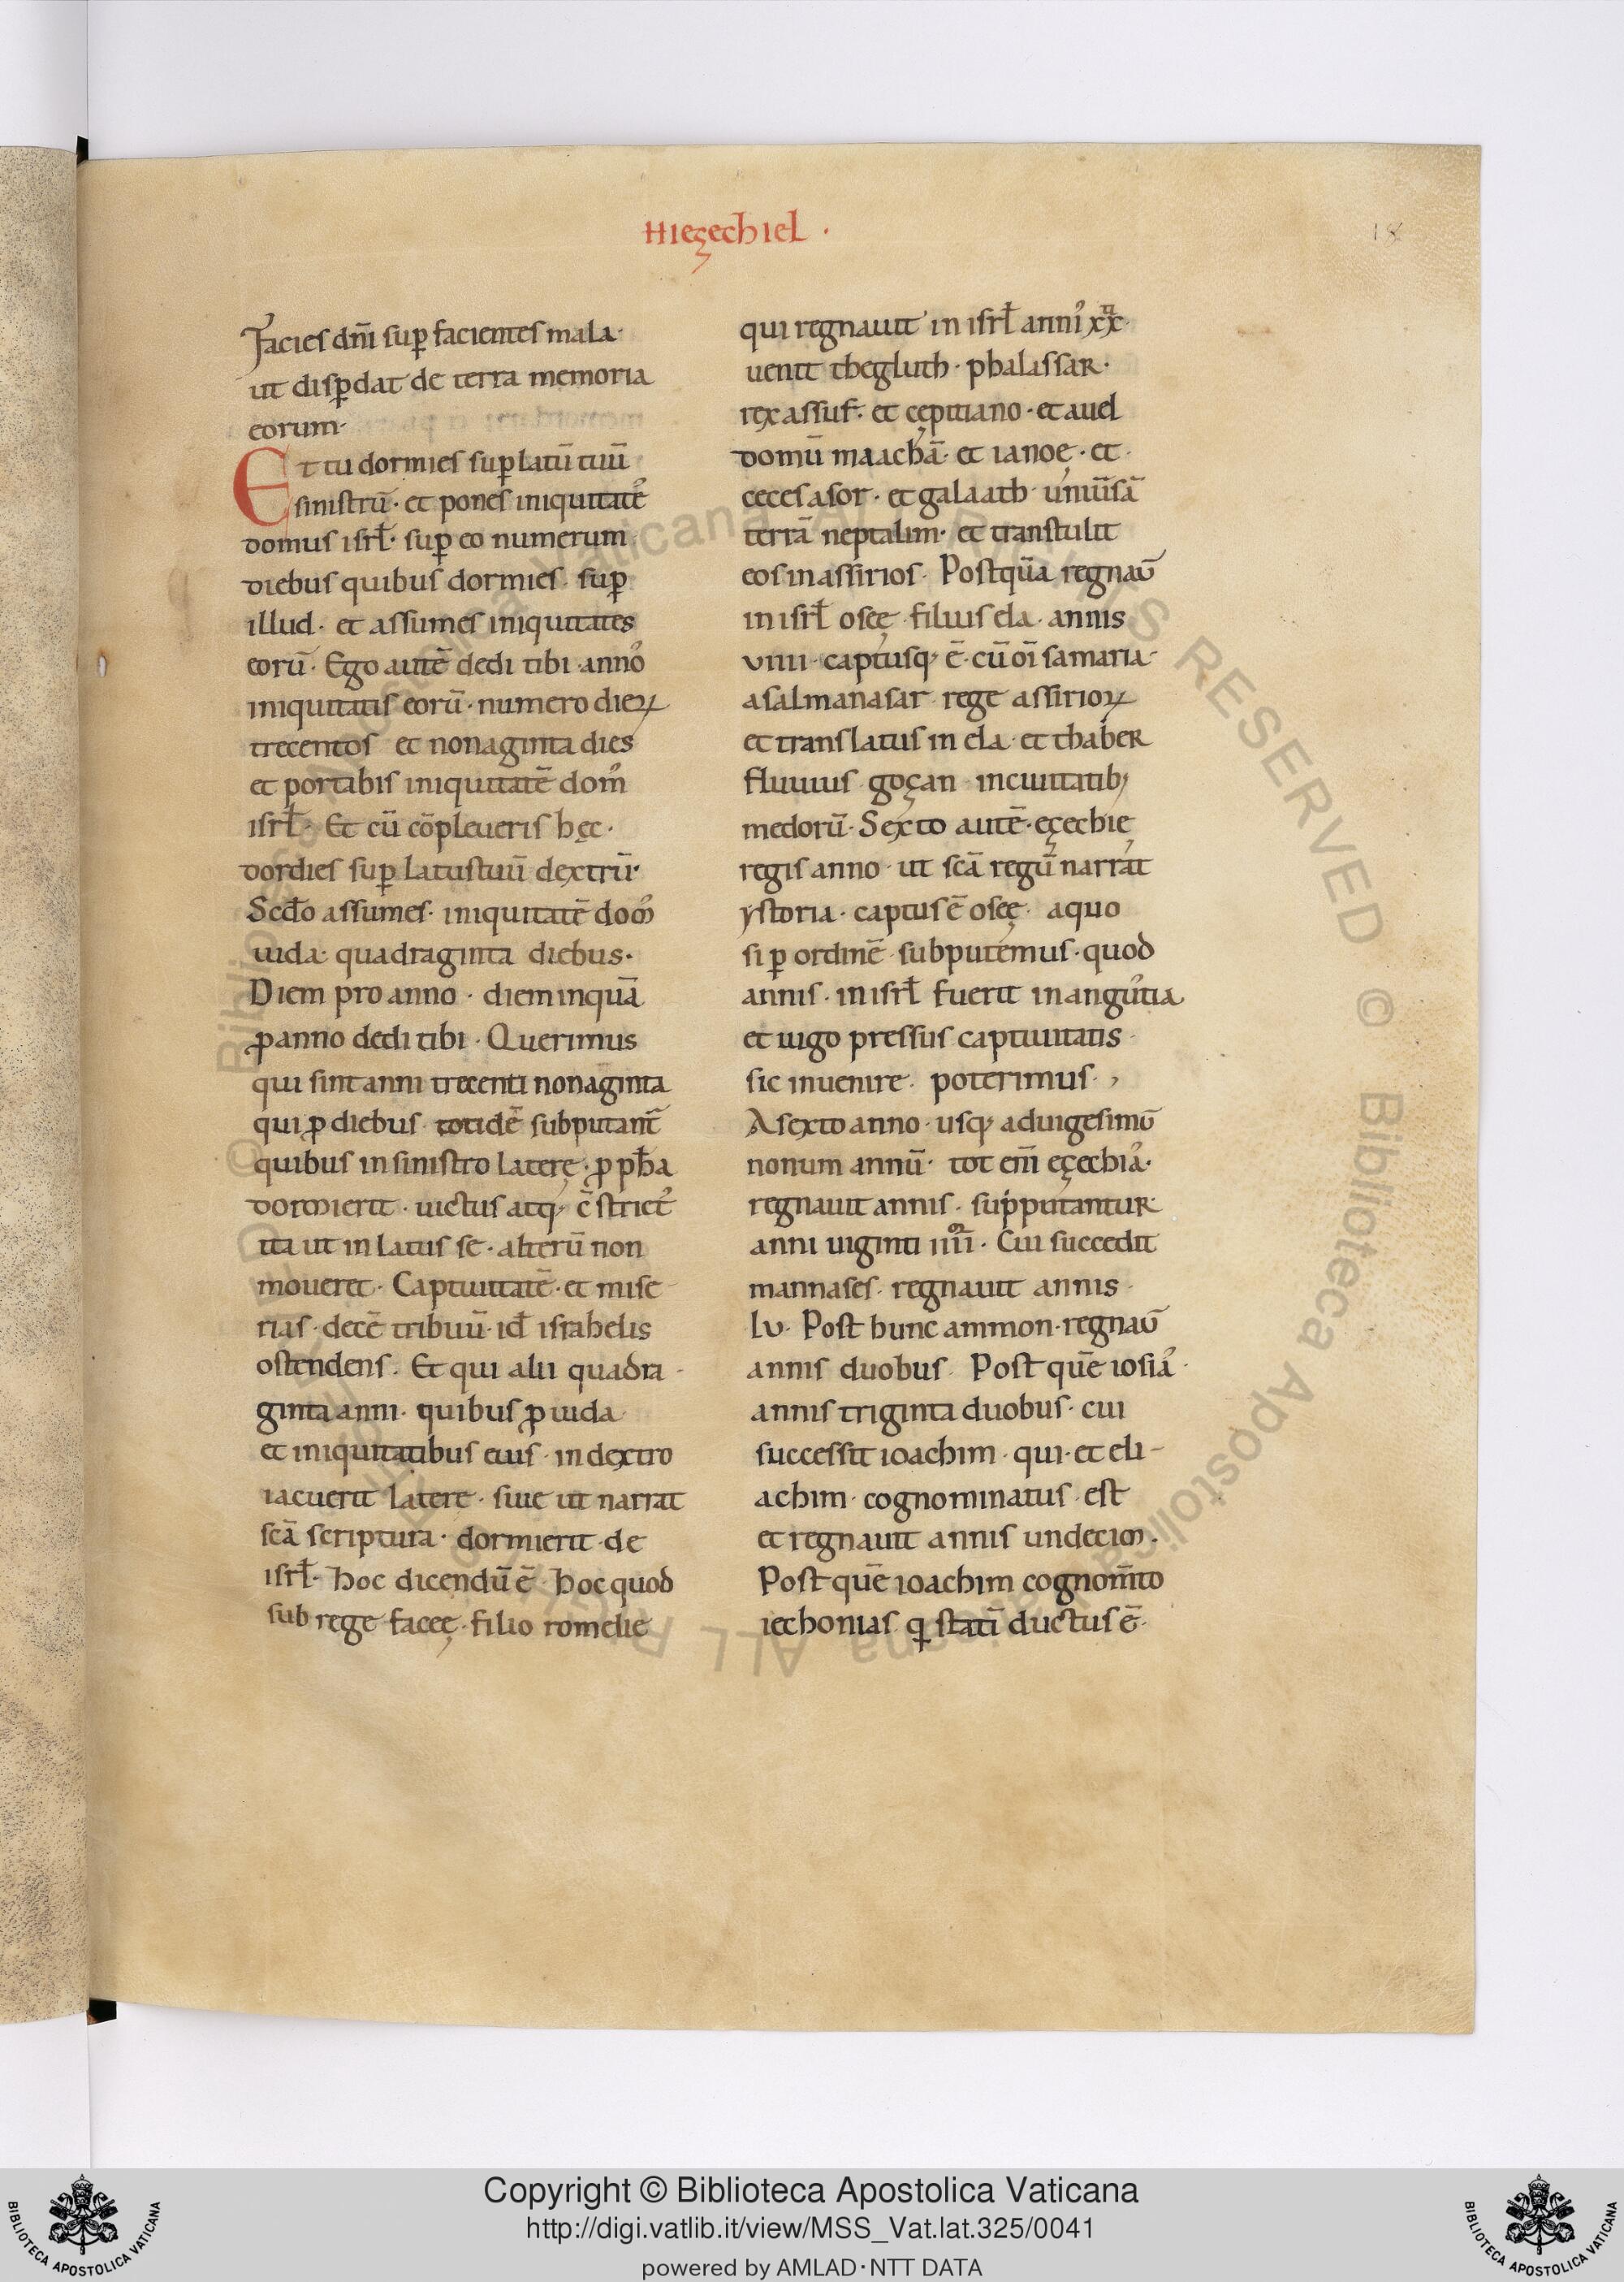 Hieçechiel ·
18
Facies dñi suꝑ facientes mala·
ut disꝑdat de terra memoria
eorum·
Et tu dormies suꝑ latū tuū
sinistrū· et pones iniquitatē
domus isrł· suꝑ eo numerum
diebus quibus dormies· suꝑ
illud· et assumes iniquitates
eorū· Ego autē dedi tibi annoʾ
iniquitatis eorū· numero dieꝝ
trecentos et nonaginta dies
et portabis iniquitatē domʾ
isrł· Et cū cōpleueris hęc·
dordies suꝑ latus tuū dextrū·
Scdo assumes· iniquitatē domʾ
iuda· quadraginta diebus·
Diem pro anno · diem inquā
ꝓ anno dedi tibi · Querimus
qui sint anni trecenti nonaginta
qui ꝓ diebus totidē subputant̄
quibus in sinistro latere· ꝓ ꝓpha
dormierit · uictus atq; c̄strictʾ
ita ut in latus se · alterū non
moueret · Captiuitatē · et mise
rias · decē tribuū · id israhelis
ostendens · Et qui alii quadra
ginta anni· quibus ꝓ iuda
et iniquitatibus eius · in dextro
iacuerit latere · siue ut narrat
scā scriptura · dormierit de
isrł· hoc dicendū ē · hoc quod
sub rege facęę · filio romelie
qui regnauit in isrł anniʾ xx
uenit thegluth · phalassar·
rex assuʳ· et cępit iano · et auel
domū maachā· et ianoę · et
ceces asor · et galaath uniūsā
terrā neptalim· et transtulit
eos in assirios · Postqūa regnaū
in isrł oseę filius ela · annis
viiii · captusq; ē · cū oī samaria
a salmanasar rege assirioꝝ
et translatus in ela et thaber
fluuius goçan in ciuitatib;
medorū· Sexto autē · eçechie
regis anno · ut scā regū narrat
ystoria · captus ē oseę · a quo
si ꝑ ordinē subputemus · quod
annis · in isrł fuerit in anguʾtia
et iugo pressus captiuitatis
sic inuenire · poterimus ·,
A sexto anno · usq; ad uigesimū
nonum annū· tot em̄ eçechiaʾ·
regnauit annis · supputantur
anni uiginti iiii · Cui succedit
mannases · regnauit annis
lv· Post hunc ammon · regnaū
annis duobus · Post quē iosiaʾ·
annis triginta duobus · cui
successit ioachim · qui · et eli-
achim · cognominatus est
et regnauit annis undecim ·
Post quē ioachim cognom̄to
iechonias q statī ductus ē·
Copyright © Biblioteca Apostolica Vaticana
http://digi.vatlib.it/view/MSS_Vat.lat.325/0041
powered by AMLAD·NTT DATA
BIBLIOTECA APOSTOLICA VATICANA
BIBLIOTECA APOSTOLICA VATICANA